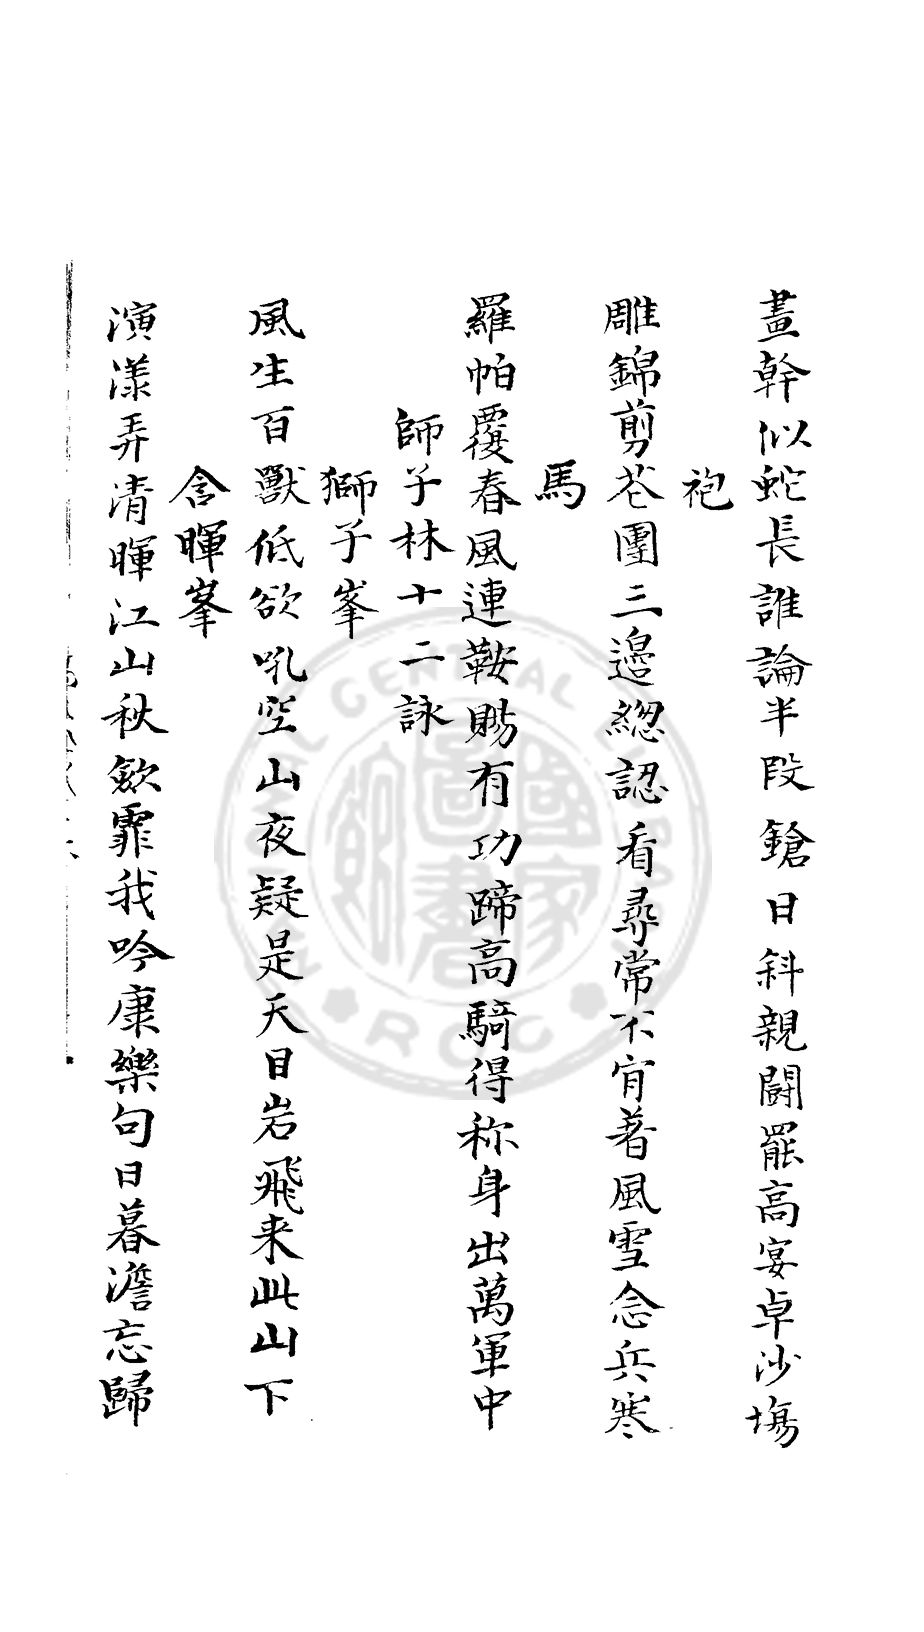 畫幹似蛇長誰論半段鎗日斜親鬭罷高宴卓沙塲
袍
雕錦剪花團三邊總認看尋常不肯著風雪念兵寒
馬
羅帕覆春風連鞍賜有功蹄高騎得称身出萬軍中
師子林十二詠
獅子峯
風生百獸低欲吼空山夜疑是天目岩飛来此山下
含暉峯
演漾弄清暉江山秋歛霏我吟康樂句日暮澹忘歸
NATIONAL CENTRAL LIBRARY
R.O.C
國家圖書館